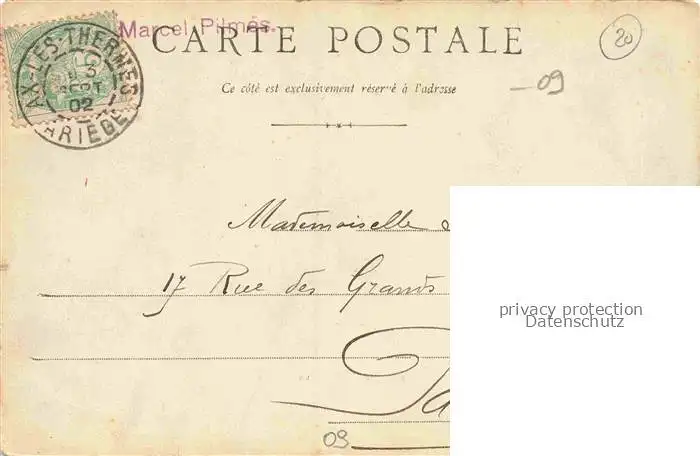 Marcel Pilmés.
CARTE POSTALE
20
Ce côté est exclusivement réservé à l'adresse
09
AX-LES-THERMES
5
SEPT
02
ARIEGE
Mademoiselle
17 Rue des Grands
Pa
09
privacy protection
Datenschutz